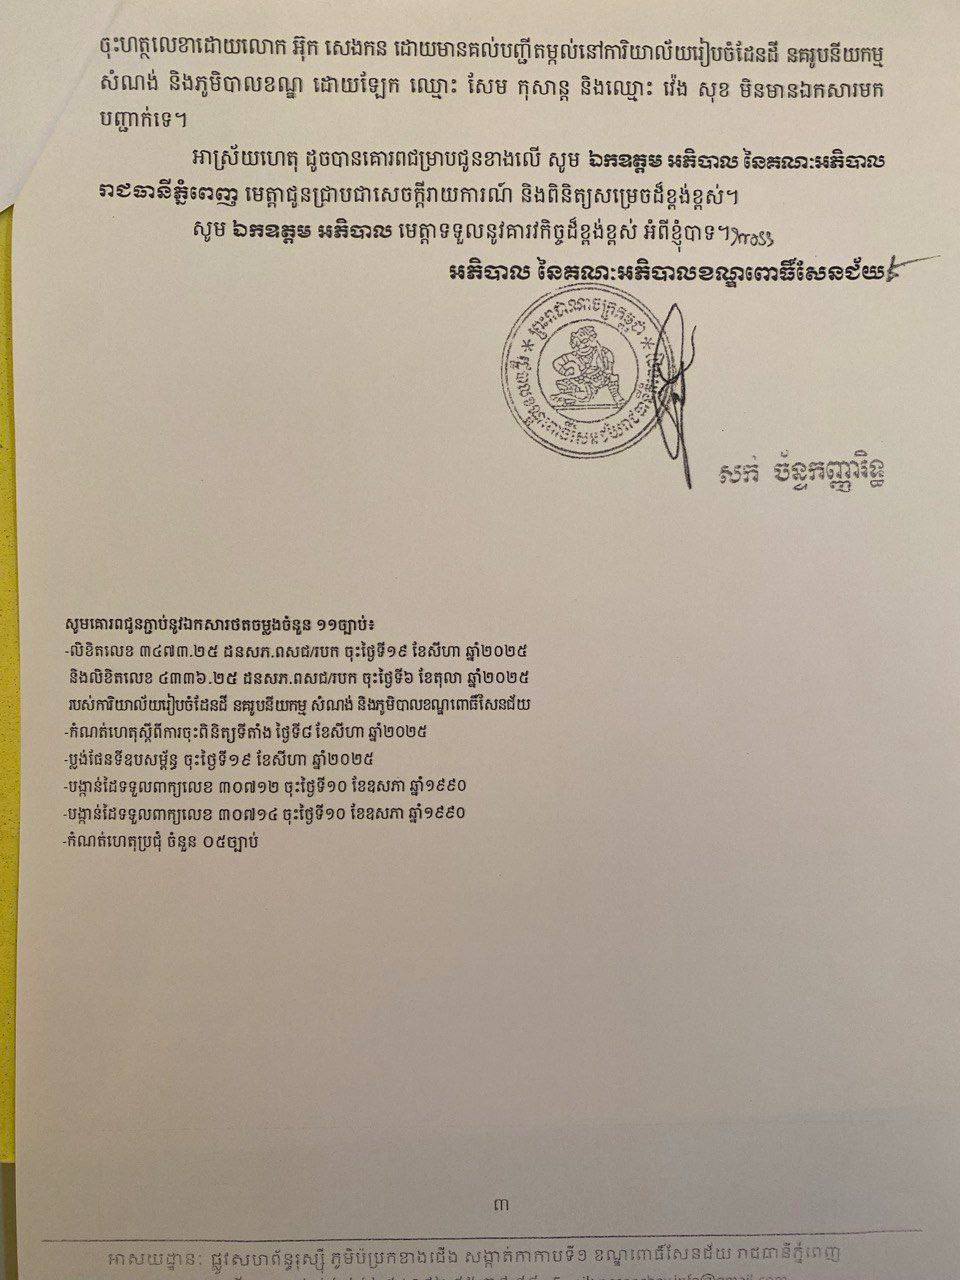 ចុះហត្ថលេខាដោយលោក អ៊ុក សេងកន ដោយមានគល់បញ្ជីតម្កល់នៅការិយាល័យរៀបចំដែនដី នគរូបនីយកម្ម
សំណង់ និងភូមិបាលខណ្ឌ ដោយឡែក ឈ្មោះ សែម កុសាន្ត និងឈ្មោះ វ៉េង សុខ មិនមានឯកសារមក
បញ្ជាក់ទេ។
អាស្រ័យហេតុ ដូចបានគោរពជម្រាបជូនខាងលើ សូម ឯកឧត្តម អភិបាល នៃគណៈអភិបាល
រាជធានីភ្នំពេញ មេត្តាជូនជ្រាបជាសេចក្តីរាយការណ៍ និងពិនិត្យសម្រេចដ៏ខ្ពង់ខ្ពស់។
សូម ឯកឧត្តម អភិបាល មេត្តាទទួលនូវគារវកិច្ចដ៏ខ្ពង់ខ្ពស់ អំពីខ្ញុំបាទ។
អភិបាល នៃគណៈអភិបាលខណ្ឌពោធិ៍សែនជ័យ
ព្រះរាជាណាចក្រកម្ពុជា
សក់ ច័ន្ទកញ្ញារិទ្ធ
សូមគោរពជូនភ្ជាប់នូវឯកសារថតចម្លងចំនួន ១១ច្បាប់៖
-លិខិតលេខ ៣៤៧៣.២៥ ដនសភ.ពសជ/របក ចុះថ្ងៃទី១៩ ខែសីហា ឆ្នាំ២០២៥
និងលិខិតលេខ ៤៣៣៦.២៥ ដនសភ.ពសជ/របក ចុះថ្ងៃទី៦ ខែតុលា ឆ្នាំ២០២៥
របស់ការិយាល័យរៀបចំដែនដី នគរូបនីយកម្ម សំណង់ និងភូមិបាលខណ្ឌពោធិ៍សែនជ័យ
-កំណត់ហេតុស្តីពីការចុះពិនិត្យទីតាំង ថ្ងៃទី៨ ខែសីហា ឆ្នាំ២០២៥
-ប្លង់ផែនទីឧបសម្ព័ន្ធ ចុះថ្ងៃទី១៩ ខែសីហា ឆ្នាំ២០២៥
-បង្កាន់ដៃទទួលពាក្យលេខ ៣០៧១២ ចុះថ្ងៃទី១០ ខែឧសភា ឆ្នាំ១៩៩០
-បង្កាន់ដៃទទួលពាក្យលេខ ៣០៧១៤ ចុះថ្ងៃទី១០ ខែឧសភា ឆ្នាំ១៩៩០
-កំណត់ហេតុប្រជុំ ចំនួន ០៥ច្បាប់
៣
អាសយដ្ឋាន: ផ្លូវសហព័ន្ធរុស្ស៊ី ភូមិប៉ប្រកខាងជើង សង្កាត់កាកាបទី១ ខណ្ឌពោធិ៍សែនជ័យ រាជធានីភ្នំពេញ